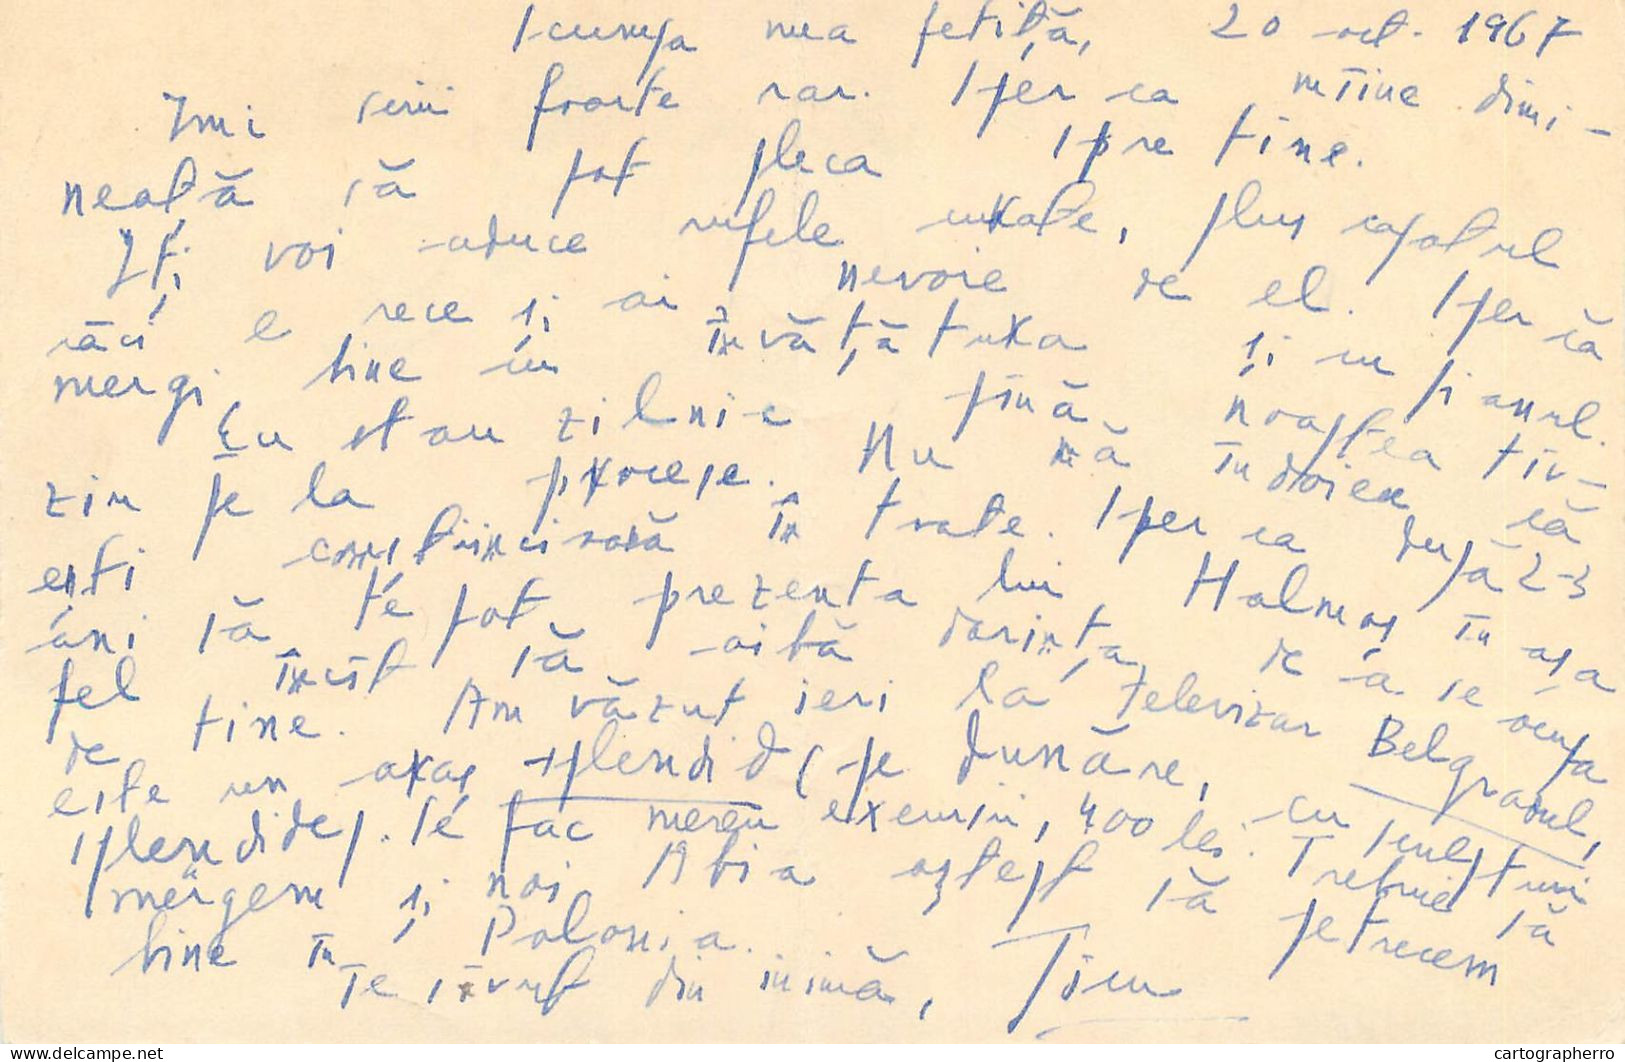 Scumpa mea fetiță, 20 oct. 1967
Îmi scrii foarte rar. Sper ca mîine dimi-
neață să pot pleca spre tine.
Îți voi aduce rufele curate, plus capotul
căci e rece și ai nevoie de el. Sper că
mergi bine cu învățătura și cu pianul.
Eu stau zilnic pînă noaptea tîr-
ziu pe la procese. Nu mă îndoiesc că
ești conștiincioasă în toate. Sper ca după 2-3
ani să te pot prezenta lui Halmoș în așa
fel încît să aibă dorința de a se ocupa
de tine. Am văzut ieri la televizor Belgradul,
este un oraș splendid (pe Dunăre, cu sculpturi
splendide). Se fac mereu excursii, 400 lei. Trebuie să
mergem și noi. Abia aștept să petrecem
bine în Polonia.
Te sărut din inimă, Ticu
cartographerro